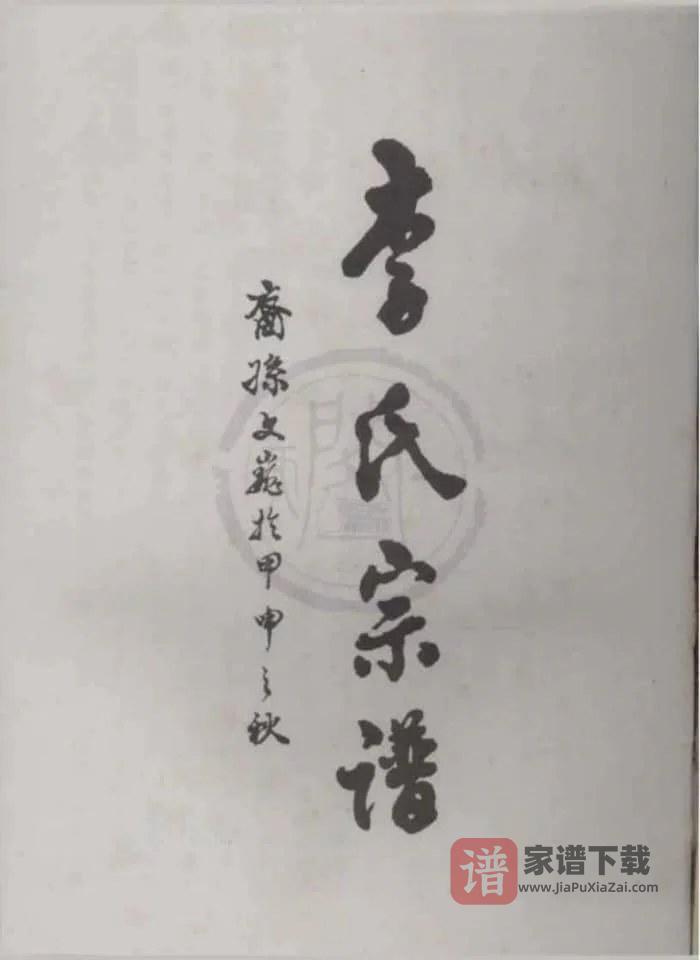 李氏宗谱
裔孫文巍於甲申之秋
谱
家谱下载
www.JiaPuXiaZai.com